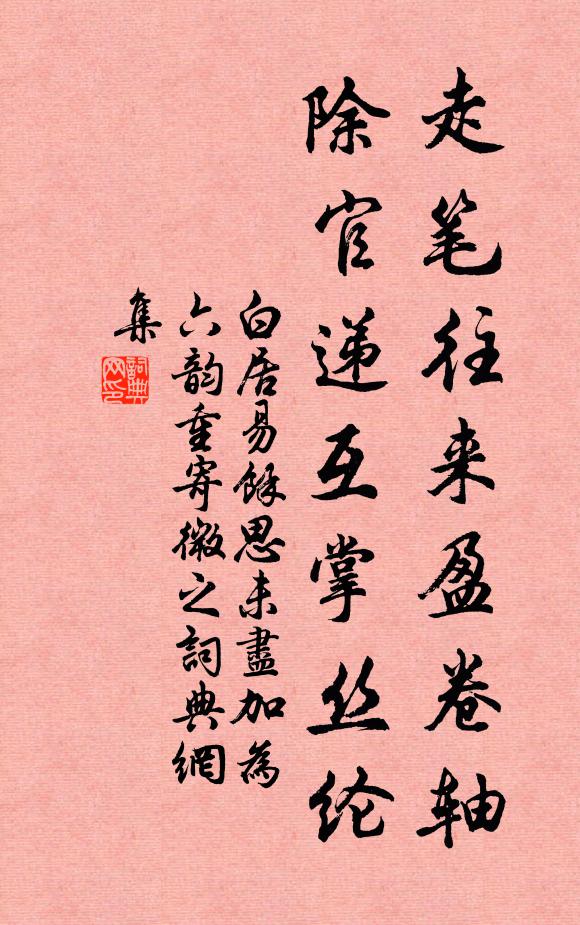 走笔往来盈卷轴
除官递互掌丝纶
白居易餘思未盡加為
六韵重寄微之詞典網
集
詞典网印